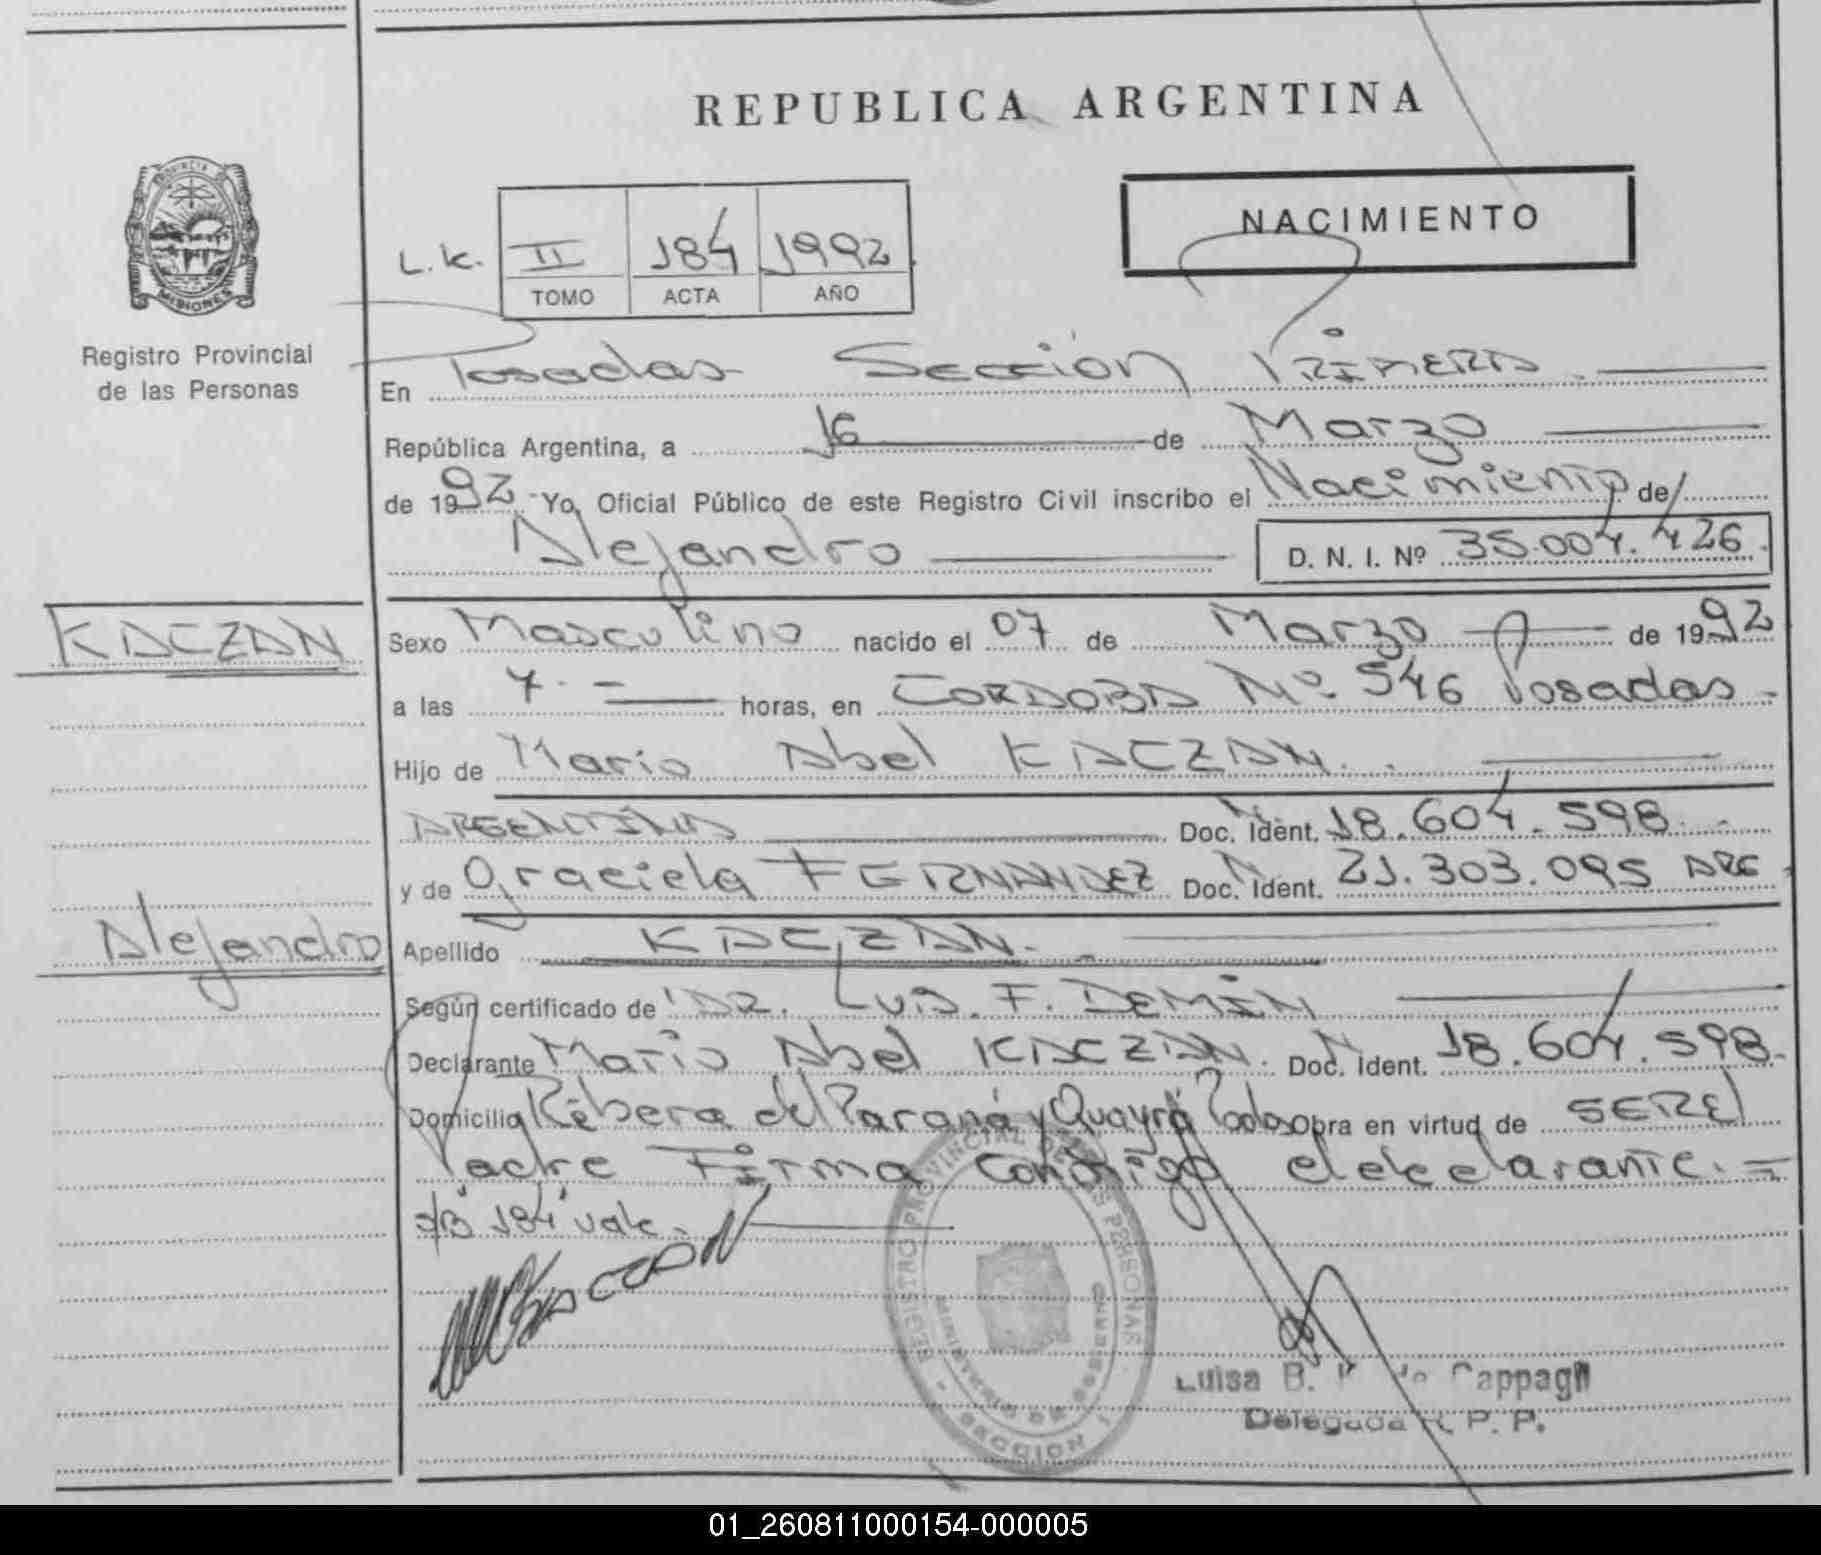 REPUBLICA ARGENTINA
PROVINCIA DE
MISIONES
Registro Provincial
de las Personas
NACIMIENTO
L.K. II 184 1992
TOMO ACTA AÑO
En Posadas Sección PRIMERA.
República Argentina, a 16 de Marzo
de 1992 Yo, Oficial Público de este Registro Civil inscribo el Nacimiento de
Alejandro D. N. I. Nº 35.004.426.
KACZAN
Sexo Masculino nacido el 07 de Marzo de 1992
a las 4.- horas, en CORDOBA Nº 546 Posadas-
Hijo de Mario Abel KACZAN.
ARGENTINA Doc. Ident. 18.604.598
y de Graciela FERNANDEZ Doc. Ident. 21.303.095 ARG
Alejandro
Apellido KACZAN.-
Según certificado de DR. Luis. F. DEMIN
Declarante Mario Abel KACZAN. Doc. Ident. 18.604.598-
Domicilio Ribera del Paraná y Quayrá Obra en virtud de SER El
Padre Firma Conmigo el declarante.=
"184" vale.-
REGISTRO PROVINCIAL DE LAS PERSONAS
MINISTERIO DE GOBIERNO
- SECCION 1
Luisa B. de Cappagli
Delegada R. P. P.
01_260811000154-000005